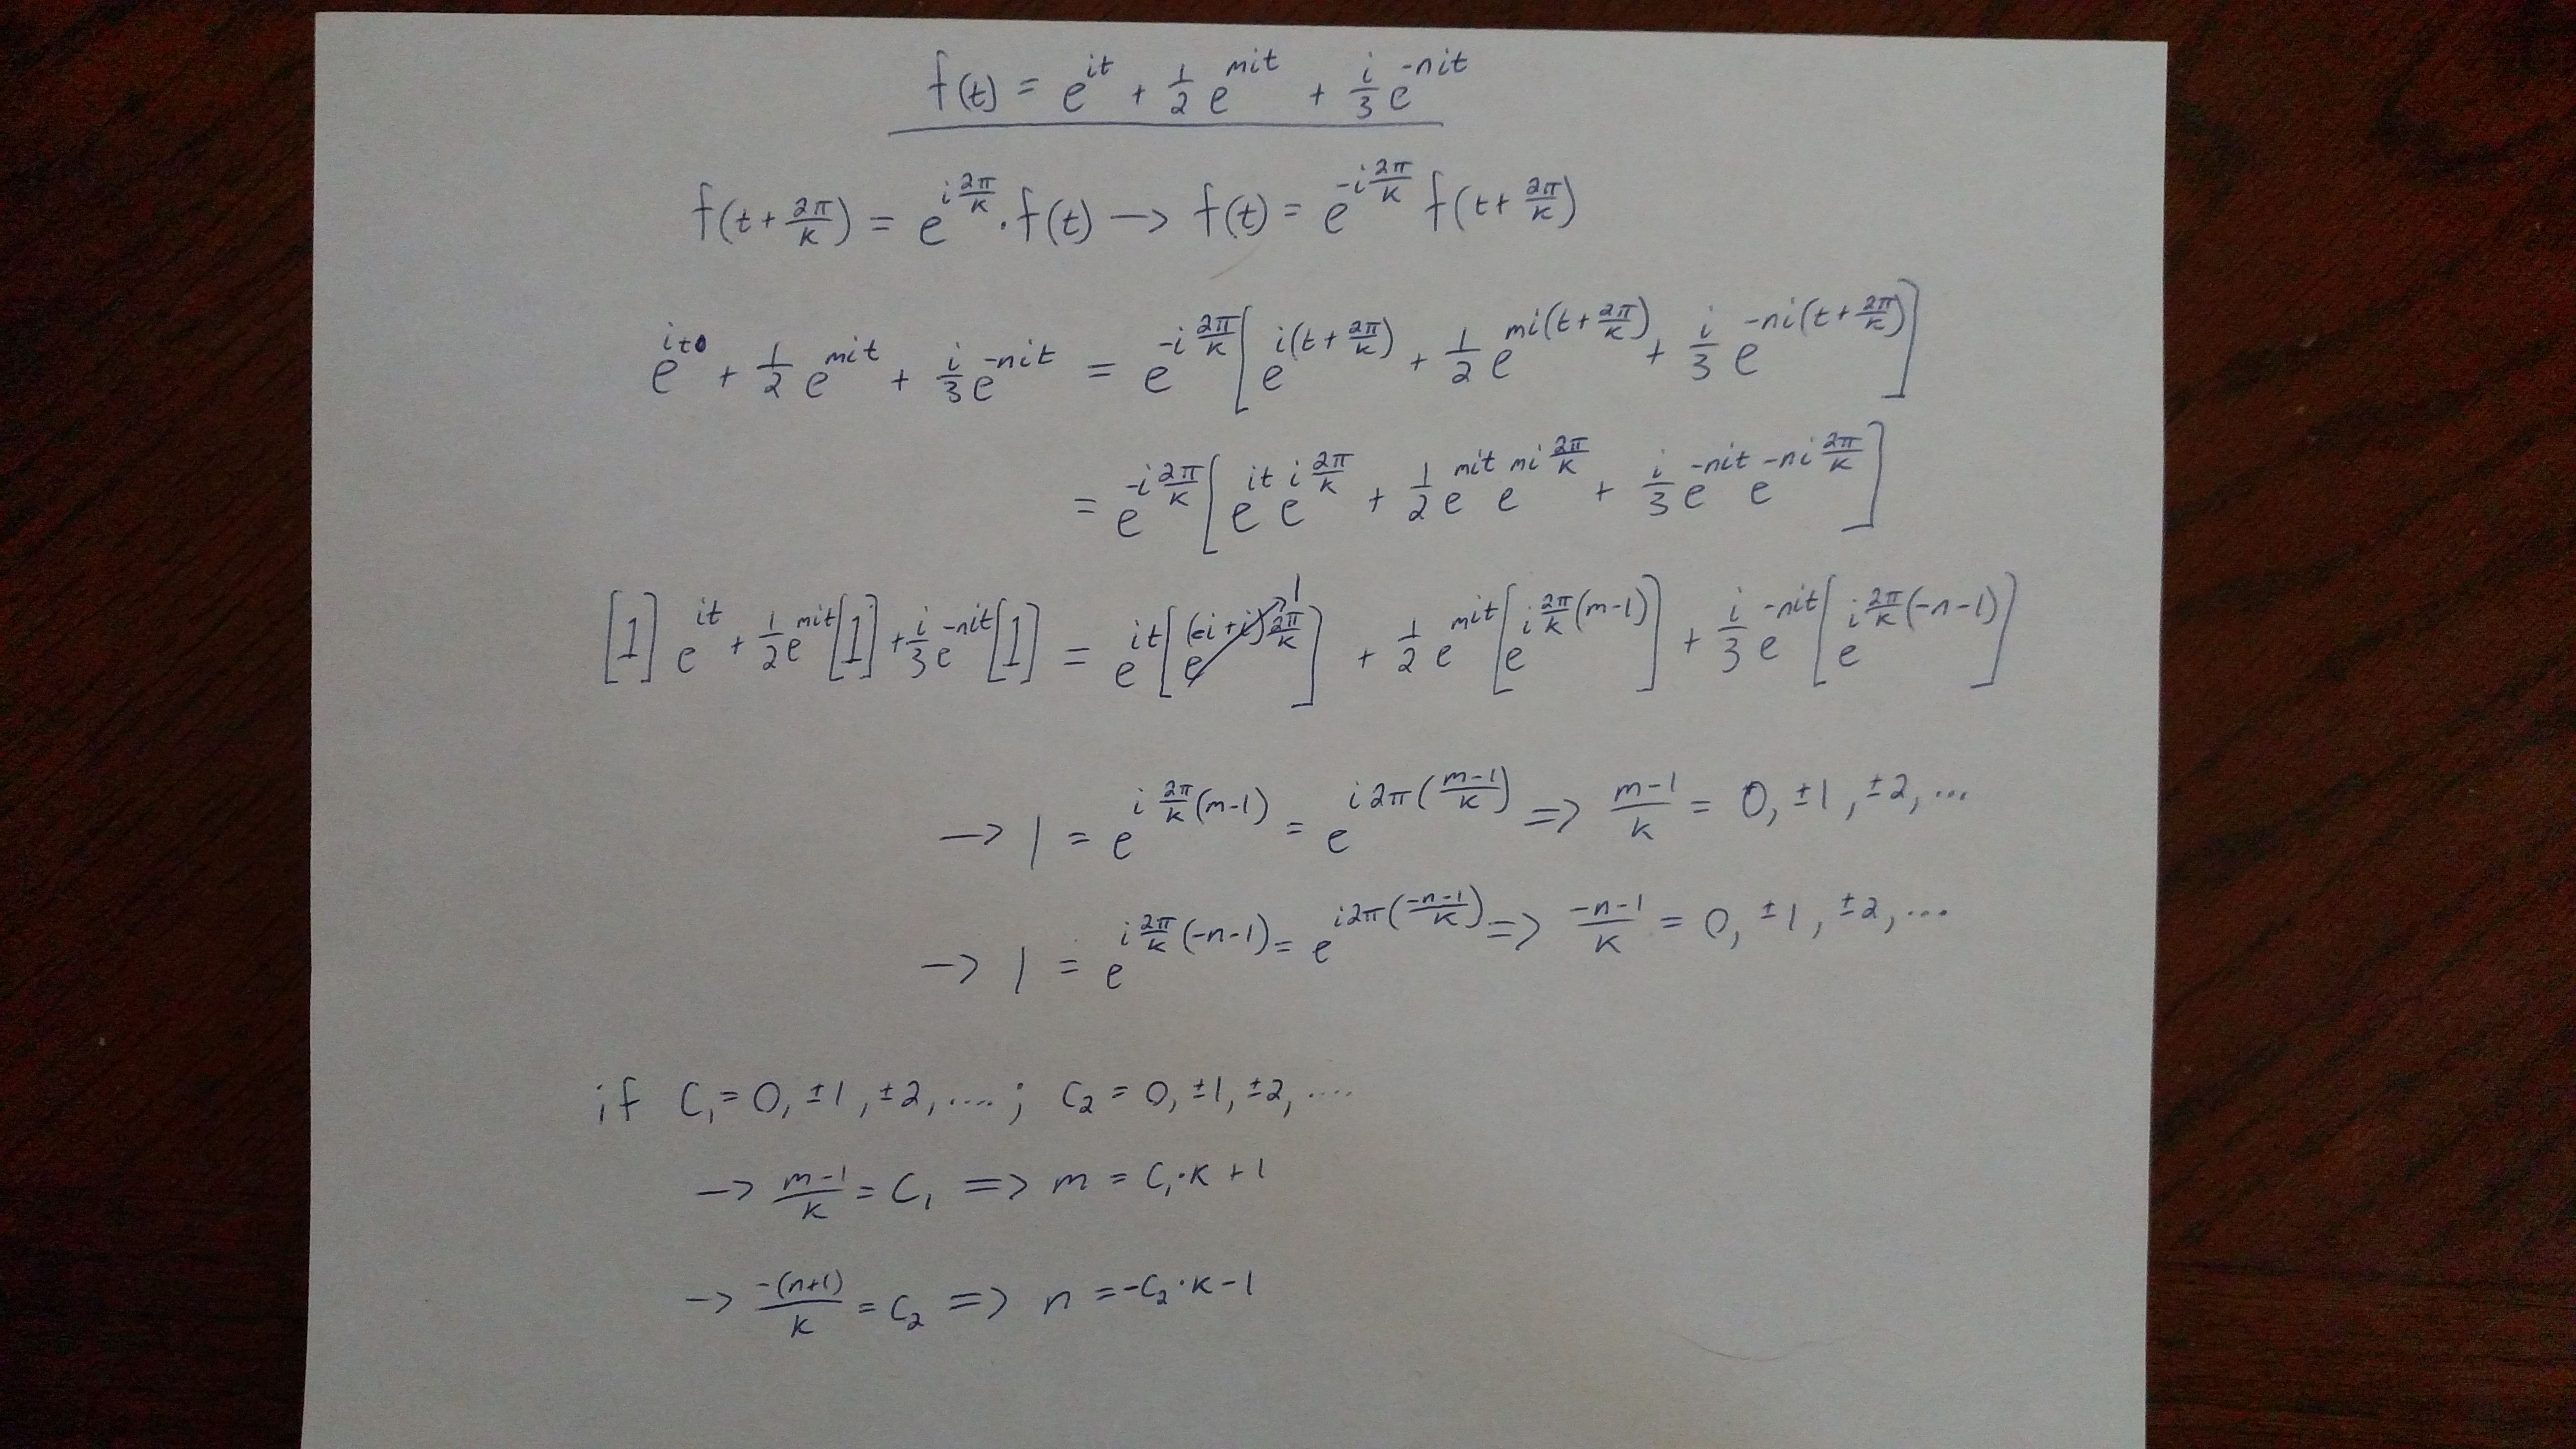 f(t) = e^{it} + \frac{1}{2} e^{mit} + \frac{i}{3} e^{-nit}
f(t + \frac{2π}{k}) = e^{i\frac{2π}{k}} · f(t) → f(t) = e^{-i\frac{2π}{k}} f(t + \frac{2π}{k})
e^{it} + \frac{1}{2} e^{mit} + \frac{i}{3} e^{-nit} = e^{-i\frac{2π}{k}} [ e^{i(t + \frac{2π}{k})} + \frac{1}{2} e^{mi(t + \frac{2π}{k})} + \frac{i}{3} e^{-ni(t + \frac{2π}{k})} ]
= e^{-i\frac{2π}{k}} [ e^{it} e^{i\frac{2π}{k}} + \frac{1}{2} e^{mit} e^{mi\frac{2π}{k}} + \frac{i}{3} e^{-nit} e^{-ni\frac{2π}{k}} ]
[1] e^{it} + \frac{1}{2} e^{mit} [1] + \frac{i}{3} e^{-nit} [1] = e^{it} [ e^{(-i+i)\frac{2π}{k}} 1 ] + \frac{1}{2} e^{mit} [ e^{i\frac{2π}{k}(m-1)} ] + \frac{i}{3} e^{-nit} [ e^{i\frac{2π}{k}(-n-1)} ]
→ 1 = e^{i\frac{2π}{k}(m-1)} = e^{i2π(\frac{m-1}{k})} ⇒ \frac{m-1}{k} = 0, ±1, ±2, ...
→ 1 = e^{i\frac{2π}{k}(-n-1)} = e^{i2π(\frac{-n-1}{k})} ⇒ \frac{-n-1}{k} = 0, ±1, ±2, ...
if C₁ = 0, ±1, ±2, .... ; C₂ = 0, ±1, ±2, ....
→ \frac{m-1}{k} = C₁ ⇒ m = C₁·k + 1
→ \frac{-(n+1)}{k} = C₂ ⇒ n = -C₂·k - 1